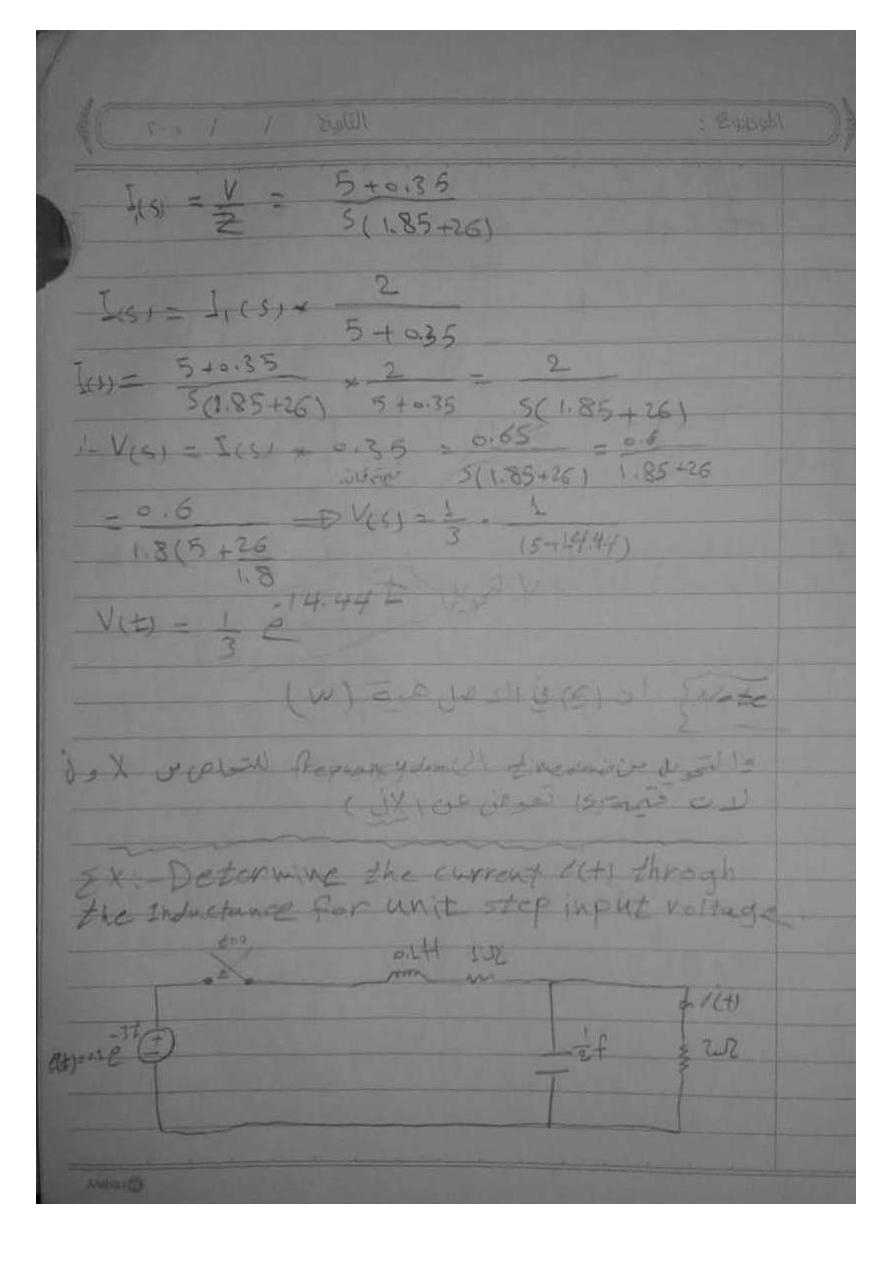 الموضوع : التاريخ / / ٢٠٠
I₁(s) = V/Z = 5+0.3S / S(1.8S+26)
I(s) = I₁(s) * 2 / 5+0.3S
I(s) = 5+0.3S / S(1.8S+26) * 2 / 5+0.3S = 2 / S(1.8S+26)
∴ V(s) = I(s) * 0.3S = 0.6S / S(1.8S+26) = 0.6 / 1.8S+26
= 0.6 / 1.8(S + 26/1.8 ⟹ V(s) = 1/3 · 1 / (S+14.44)
V(t) = 1/3 e^-14.44 t
Note } ان (s) في الاصل هية (w)
والتحويل من time domain الى للتخلص من
لان قيمة (s) تعوض عن
Ex:- Determine the current i(t) throgh
the Inductance for unit step input voltage
t=0
0.1H 1Ω
i(t)
e^-3t
1/2 f
2Ω